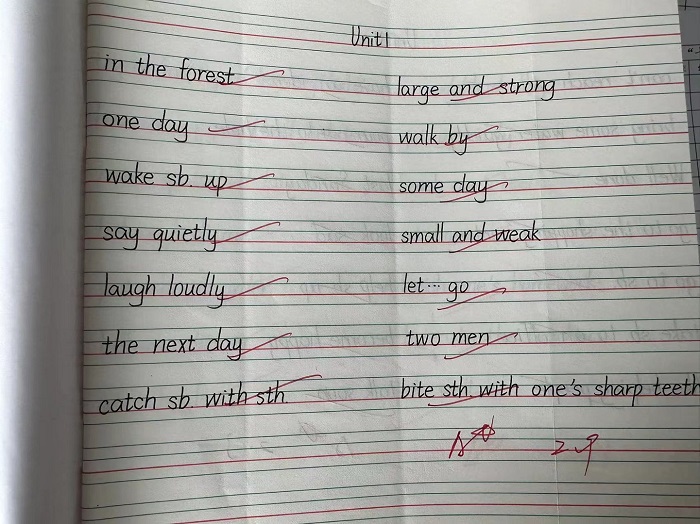 Unit 1
in the forest
large and strong
one day
walk by
wake sb. up
some day
say quietly
small and weak
laugh loudly
let… go
the next day
two men
catch sb. with sth
bite sth. with one's sharp teeth
A
2.9